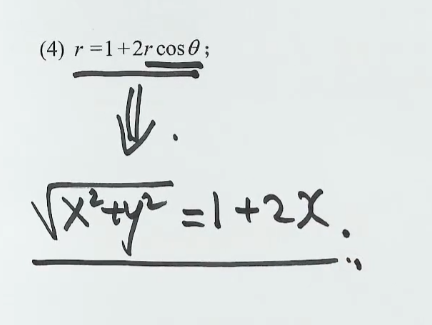 (4) r =1+2r cos θ ;
⇓ .
√x²+y² = 1 + 2x .